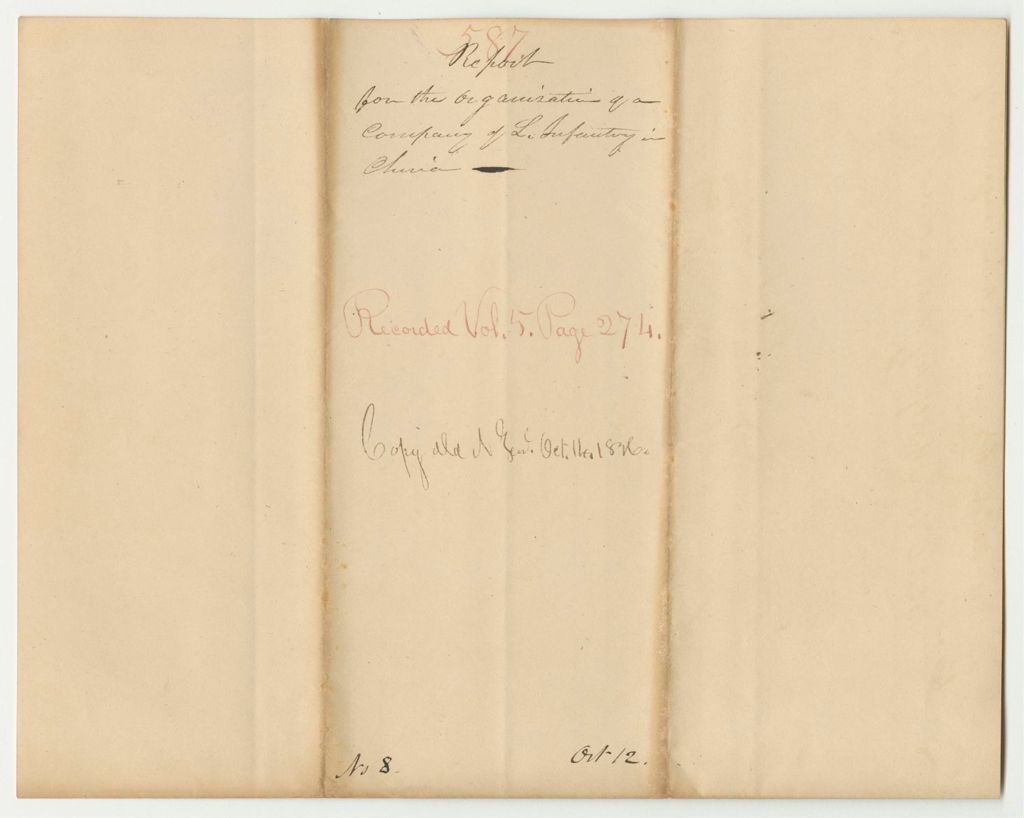 587
Report
for the organization of a
Company of L. Infantry in
China
Recorded Vol. 5. Page 274.
Copy dld A Genl. Oct. 14. 1836.
No 8.
Oct 12.